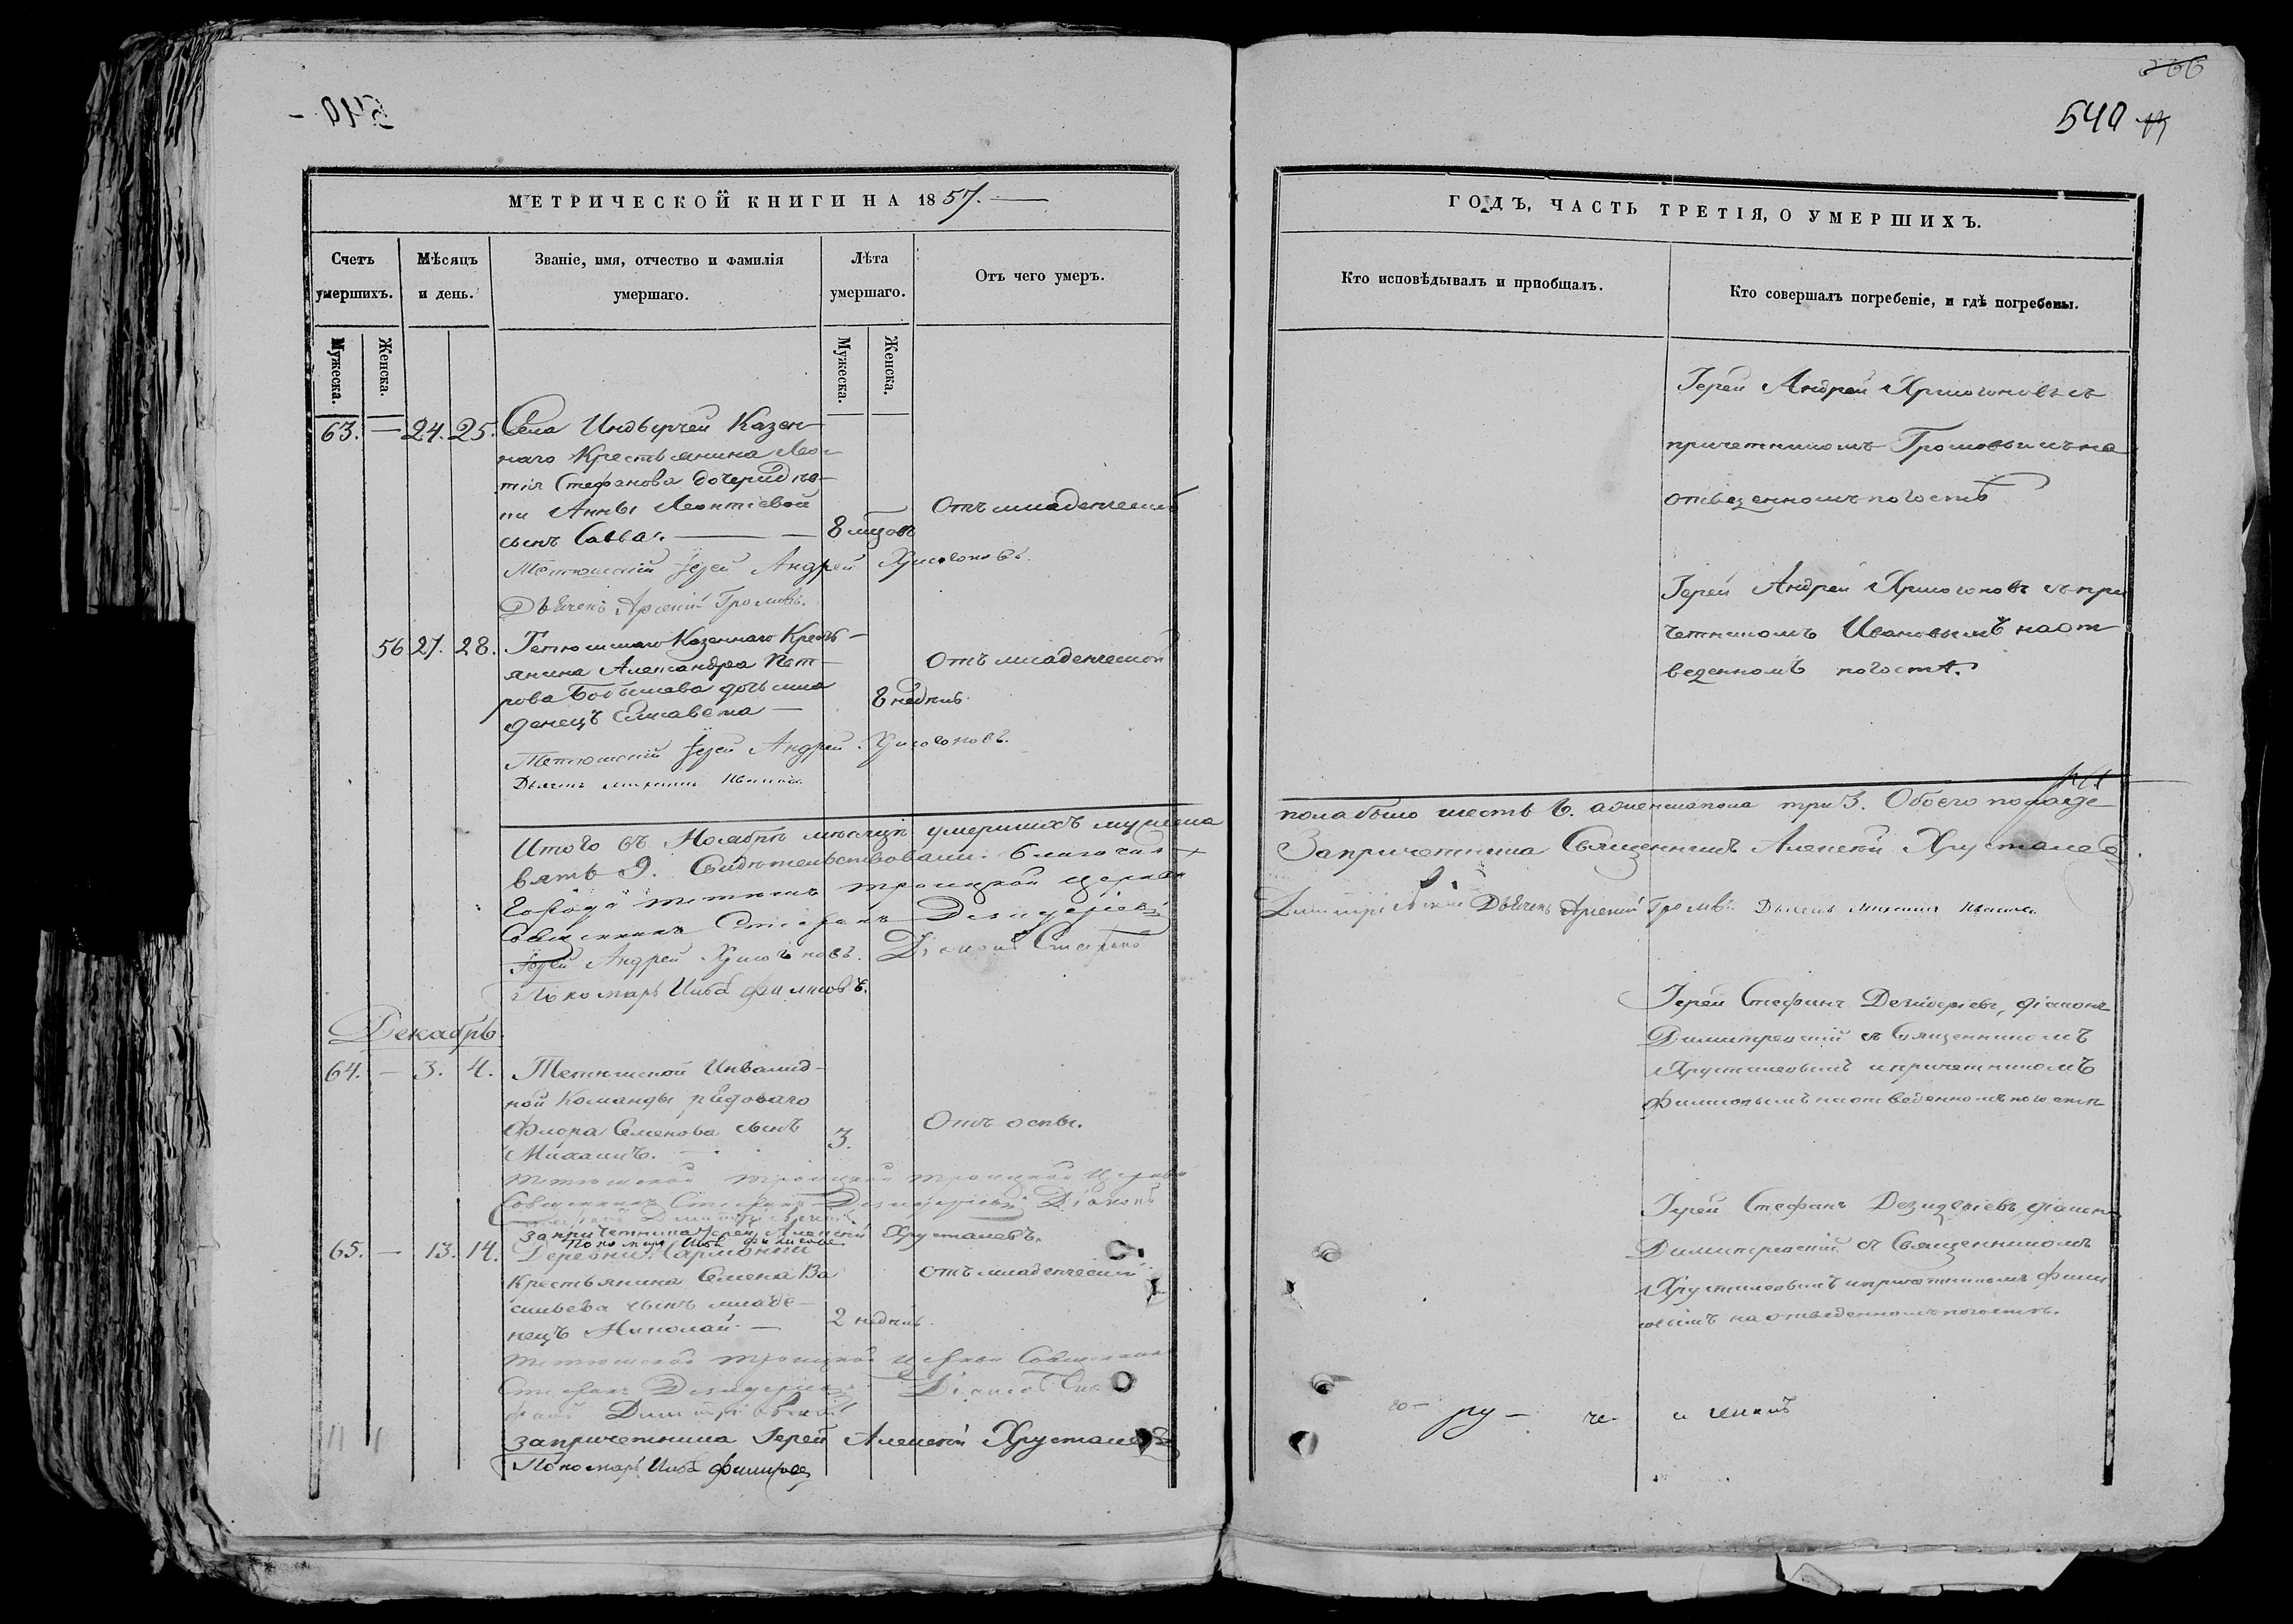 540
МЕТРИЧЕСКОЙ КНИГИ НА 1857.
Счетъ умершихъ.
Мѣсяцъ и день.
Званіе, имя, отчество и фамилія умершаго.
Лѣта умершаго.
Отъ чего умеръ.
Мужеска.
Женска.
Мужеска.
Женска.
63. — 24. 25. Села Индырчей Казен-
наго Крестьянина Леон-
тія Стефанова дочери дѣв-
ки Анны Леонтіевой
сынъ Савва. 8 мцовъ Отъ младенческой
Тетюшскій Іерей Андрей Хрисогоновъ.
Дьячекъ Арсеній Громовъ.
56 27. 28. Тетюшскаго Казеннаго Кресть-
янина Александра Пет-
рова дочь мла-
денецъ Елисавета — 8 недѣль Отъ младенческой
Тетюшскій Іерей Андрей Хрисогоновъ.
Дьячекъ Михаилъ Ивановъ
Итого въ Ноябрѣ мѣсяцѣ умершихъ мужеска
вять 9. Свидѣтельствовали: Благочин.
Города Тетюшъ Троицкой церкви
Священникъ Стефанъ Дезидеріевъ
Іерей Андрей Хрисогоновъ. Діаконъ Стефанъ
Пономарь Илья Филиповъ.
Декабрь.
64. — 3. 4. Тетюшской Инвалид-
ной Команды рядоваго
Флора Семенова сынъ 3. Отъ оспы.
Михаилъ. —
Тетюшской Троицкой Церкви
Священникъ Стефанъ Дезидеріевъ Діаконъ
За причетника Іерей Алексѣй Хрусталевъ.
Пономарь Илья Филиповъ
65. — 13. 14. Деревни
Крестьянина Семена Ва
сильева сынъ младе- Отъ младенческой
нецъ Николай. — 2 недѣль
Тетюшской Троицкой Церкви Священникъ
Стефанъ Дезидеріевъ Діаконъ Сте
фанъ Димитріевскій
За причетника Іерей Алексѣй Хрусталевъ
Пономарь Илья Филиповъ
540
ГОДЪ, ЧАСТЬ ТРЕТІЯ, О УМЕРШИХЪ.
Кто исповѣдывалъ и пріобщалъ.
Кто совершалъ погребеніе, и гдѣ погребены.
Іерей Андрей Хрисогоновъ съ
причетникомъ Громовымъ на
отведенномъ погостѣ
Іерей Андрей Хрисогоновъ съ при
четникомъ Ивановымъ на от
веденномъ погостѣ.
пола было шесть 6. а женска пола три 3. Обоего пола де-
За причетника Священникъ Алексѣй Хрусталевъ
Димитріевскій Дьячекъ Арсеній Громовъ. Дьячекъ Михаилъ Ивановъ
Іерей Стефанъ Дезидеріевъ, діаконъ
Димитревскій съ Священникомъ
Хрусталевымъ и причетникомъ
Филиповымъ на отведенномъ погостѣ
Іерей Стефанъ Дезидеріевъ, діаконъ
Димитревскій съ Священникомъ
Хрусталевымъ и причетникомъ Фили
повымъ на отведенномъ погостѣ.
ру —